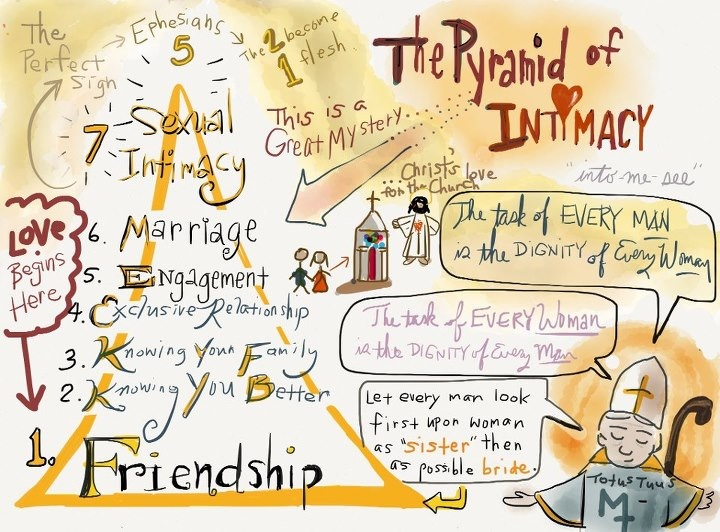 The
Perfect
Sign
Ephesians
5
The 2 become
1 flesh.
The Pyramid of
INTIMACY
"into-me-see"
This is a
Great Mystery...
Christ's love
...for the Church
7 Sexual
Intimacy
6. Marriage
5. Engagement
4. Exclusive Relationship
3. Knowing Your Family
2. Knowing You Better
1. Friendship
LOVE
Begins
Here
The task of EVERY MAN
is the DIGNITY of Every Woman
The task of EVERY WOMAN
is the DIGNITY of Every Man
Let every man look
first upon woman
as "sister" then
as possible bride.
Totus Tuus
M